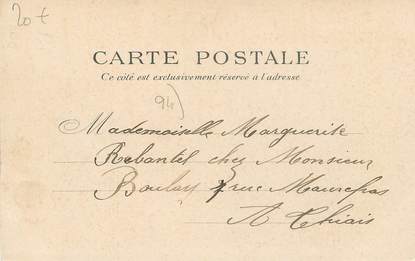 20 €
CARTE POSTALE
Ce côté est exclusivement réservé à l'adresse
94)
Mademoiselle Marguerite
Rebantel chez Monsieur
Boulay 7 rue Maurepas
A Thiais